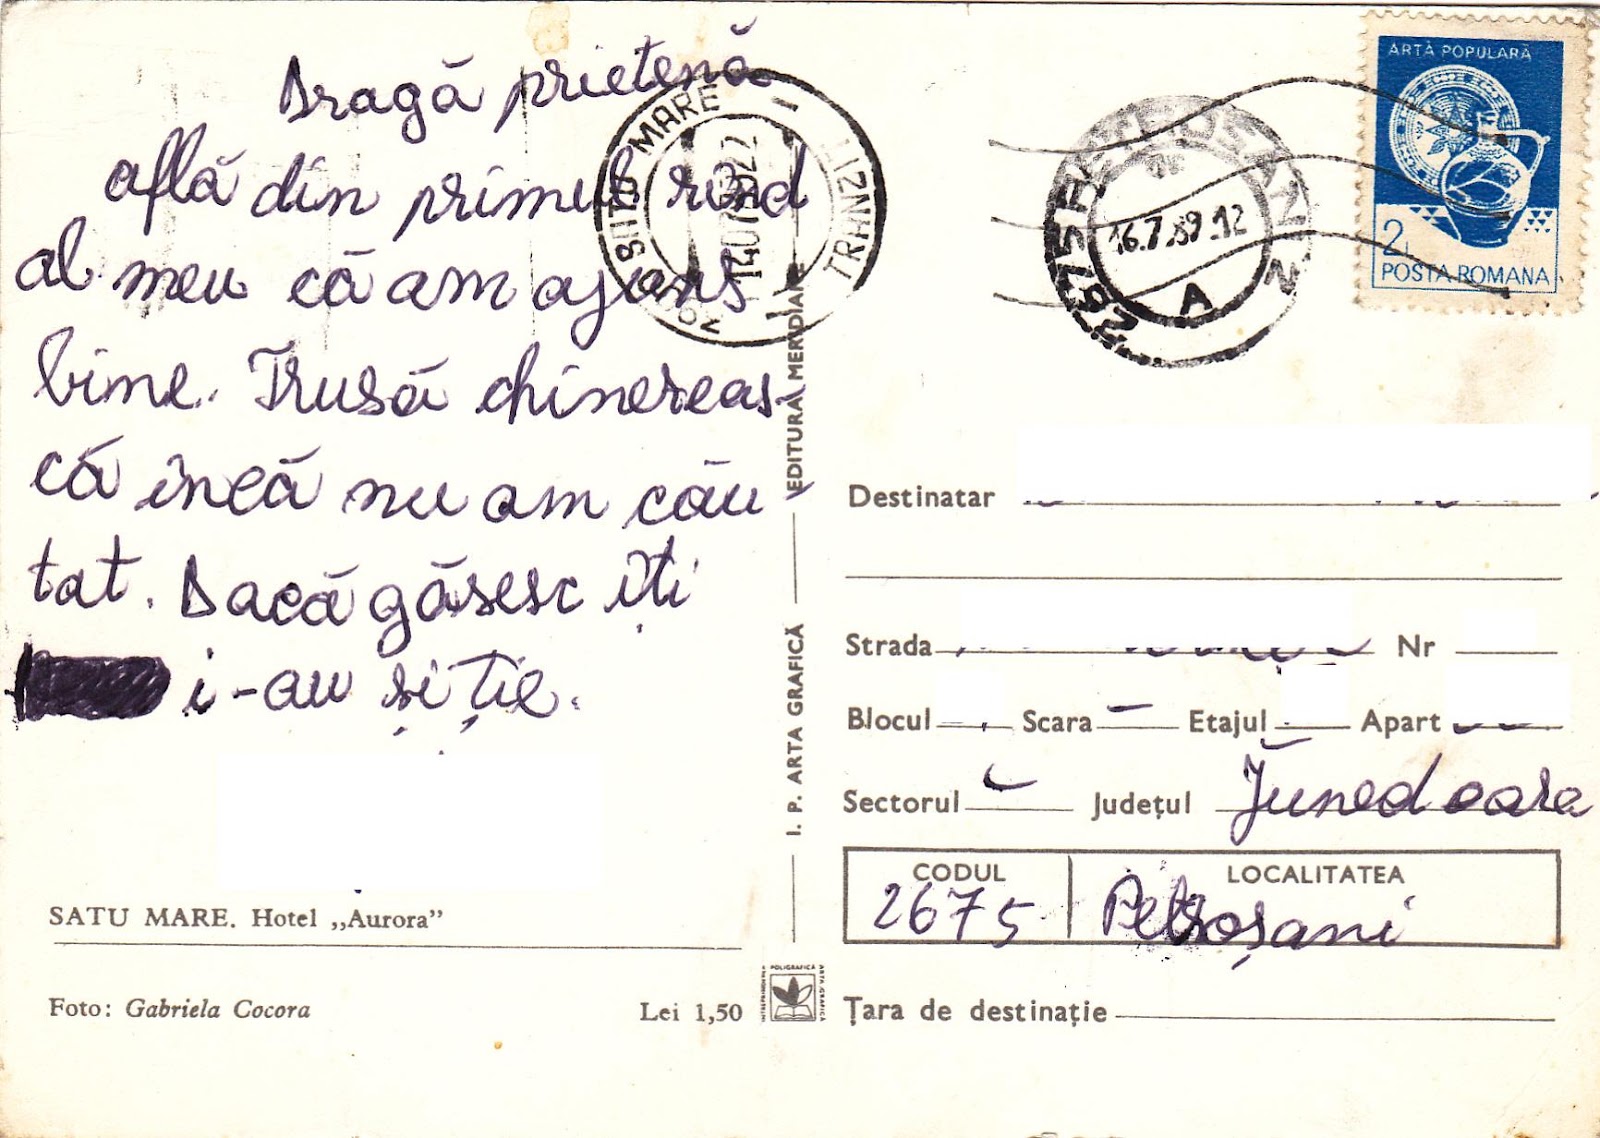 Dragă prietenă
află din primul rînd
al meu că am ajuns
bine. Trusă chinezeas-
că încă nu am cău
tat. Dacă găsesc îți
i-au și ție.
SATU MARE. Hotel „Aurora”
Foto: Gabriela Cocora
Lei 1,50
I. P. ARTA GRAFICĂ
EDITURA MERIDIANE
SATU MARE
TRANZIT
16.7.89.12
A
2675
ARTĂ POPULARĂ
2L
POSTA ROMANA
Destinatar
Strada Nr
Blocul Scara Etajul Apart
Sectorul Județul Hunedoara
CODUL LOCALITATEA
2675 Petroșani
Țara de destinație